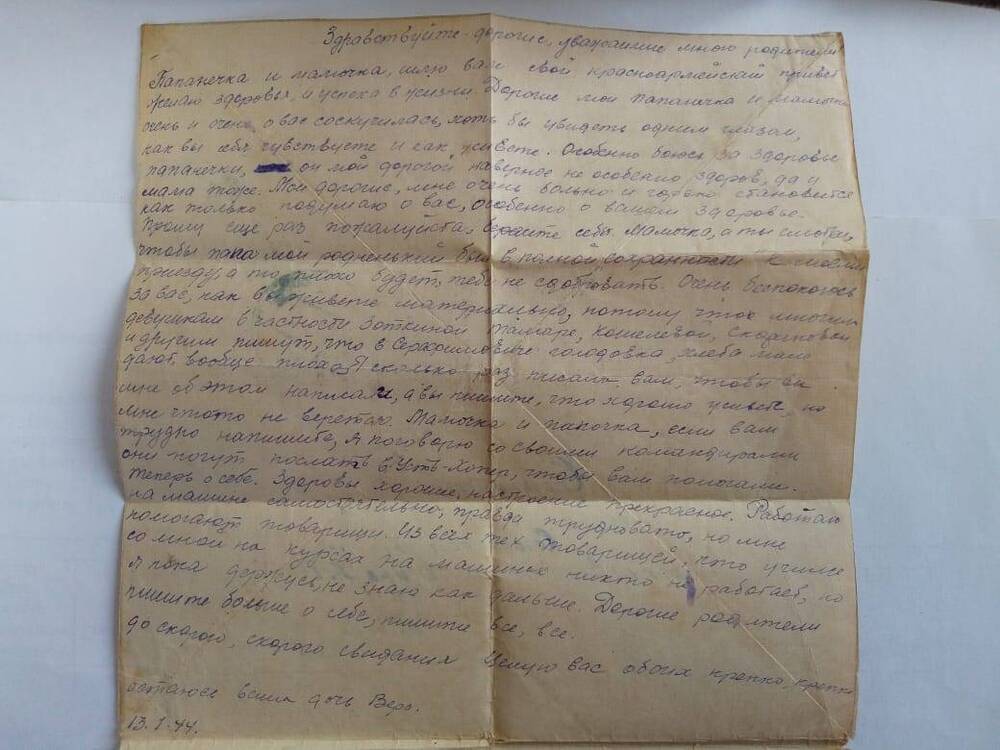 Здравствуйте дорогие, уважаиние мною родители
Папанечка и мамочка, шлю вам свой красноармейский привет
желаю здоровья, и успеха в жизни. Дорогие мои папанечка и мамочка
очень и очень о вас соскучилась, хоть бы увидеть одним глазам,
как вы себя чувствуете и как живете. Особенно боюсь за здоровье
папанечки, он мой дорогой наверное не особенно здоров, да и
мама тоже. Мои дорогие, мне очень больно и становится
как только подумаю о вас, особенно о вашем здоровье.
Прошу еще раз пожалуйста, берегите себя. Мамочка, а ты смотри,
чтобы папа мой родненький был в полной сохранности к моему
приезду, а то плохо будет, тебе не сдобровать. Очень беспокоюсь
за вас, как вы живете материально, потому что многим
девушкам в частности Зоткиной Тамаре, Кошелевой,
и другим пишут, что в Серафимовиче голодовка, хлеба мало
дают, вообще плохо. Я сколько раз писала вам, чтобы вы
мне об этом написали, а вы пишите, что хорошо живете, но
мне что-то не верется. Мамочка и папочка, если вам
трудно напишите, я поговорю со своими командирами
они могут послать в Усть-Хопер, чтобы вам помогали.
Теперь о себе. Здоровье хорошее, настроение прекрасное. Работаю
на машине самостоятельно, правда трудновато, но мне
помогают товарищи. Из всех тех товарищей, что учился
со мной на курсах на машинах никто не работает, но
я пока держусь, не знаю как дальше. Дорогие родители
пишите больше о себе, пишите все, все.
До скорого, скорого свидания Целую вас обоих крепко, крепко
остаюсь ваша дочь Вера.
13.I.44.